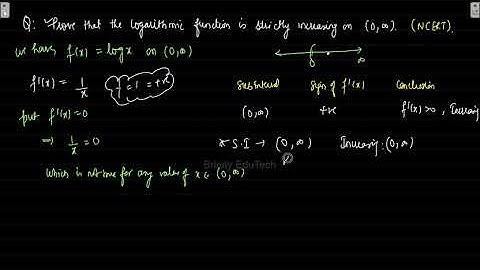 Q: Prove that the logarithmic function is strictly increasing on (0,∞). (NCERT).
We have, f(x) = log x on (0,∞)
f'(x) = 1/x
put f'(x)=0
⇒ 1/x = 0
which is not true for any value of x ∈ (0,∞)
0 ∞
Sub Interval Sign of f'(x) Conclusion
(0,∞) +ve f'(x)>0, Increasing
* S.I → (0,∞) Increasing: (0,∞)
Briony EduTech